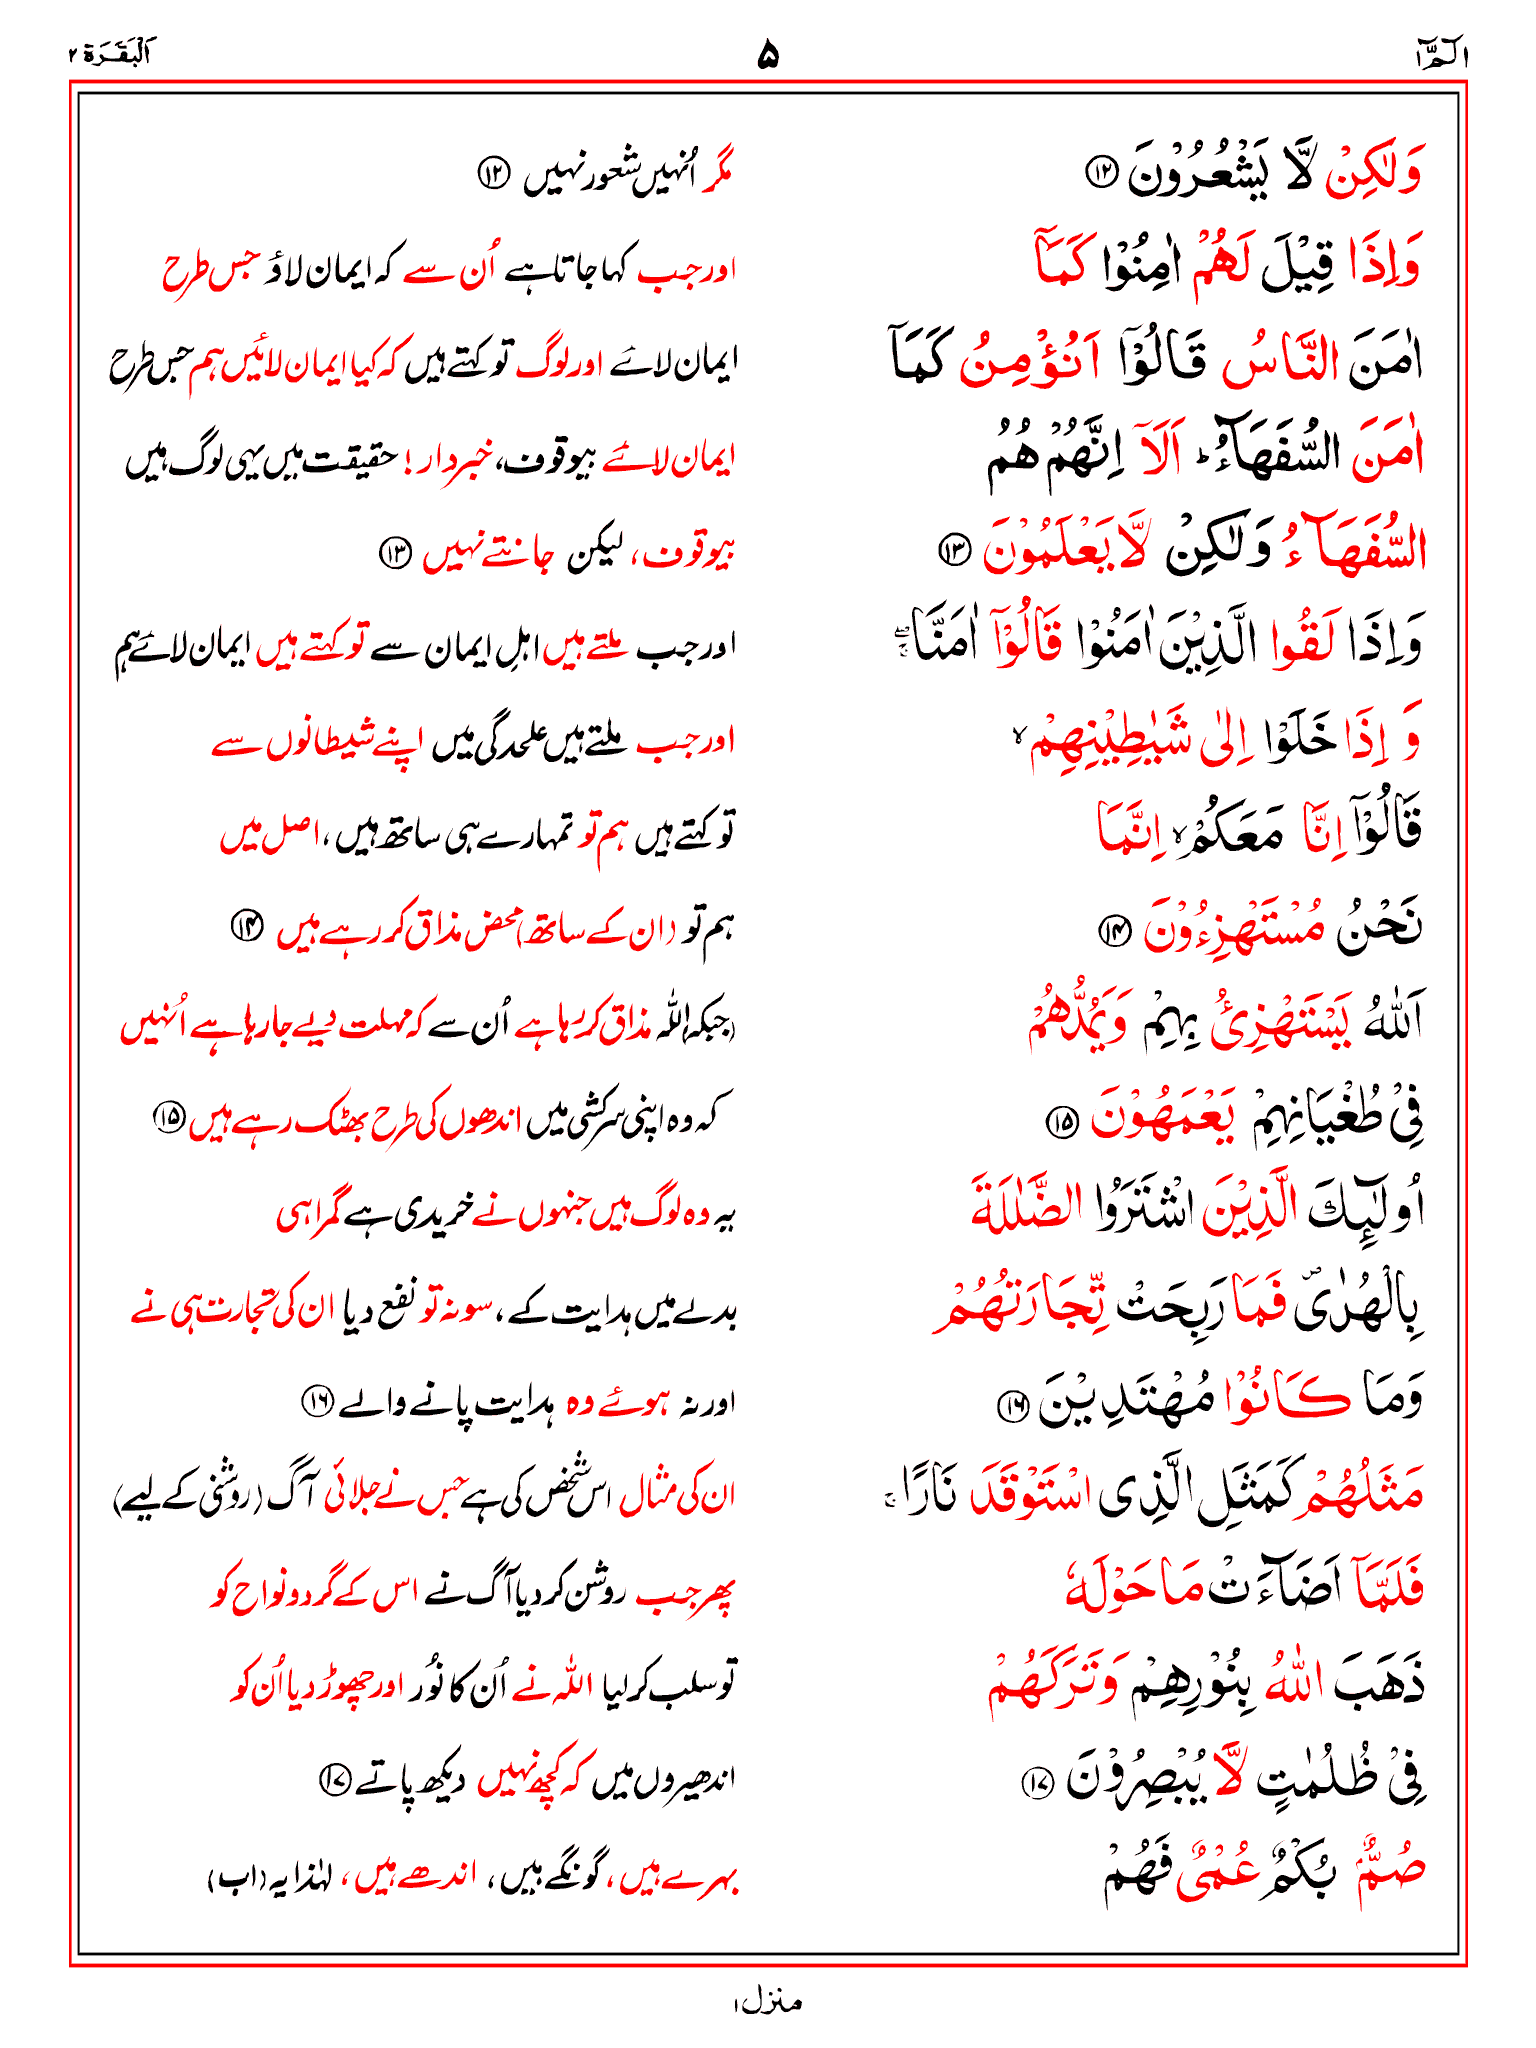 الٓمّٓ ۱
۵
اَلْبَقَرَة ۲
وَلٰكِنْ لَّا يَشْعُرُوْنَ ⑫
مگر اُنہیں شعور نہیں ⑫
وَاِذَا قِيْلَ لَهُمْ اٰمِنُوْا كَمَآ
اور جب کہا جاتا ہے اُن سے کہ ایمان لاؤ جس طرح
اٰمَنَ النَّاسُ قَالُوْٓا اَنُؤْمِنُ كَمَآ
ایمان لائے اور لوگ تو کہتے ہیں کہ کیا ایمان لائیں ہم جس طرح
اٰمَنَ السُّفَهَآءُ ؕ اَلَآ اِنَّهُمْ هُمُ
ایمان لائے بیوقوف، خبردار! حقیقت میں یہی لوگ ہیں
السُّفَهَآءُ وَلٰكِنْ لَّا يَعْلَمُوْنَ ⑬
بیوقوف، لیکن جانتے نہیں ⑬
وَاِذَا لَقُوا الَّذِيْنَ اٰمَنُوْا قَالُوْٓا اٰمَنَّا ۖۚ
اور جب ملتے ہیں اہلِ ایمان سے تو کہتے ہیں ایمان لائے ہم
وَ اِذَا خَلَوْا اِلٰى شَيٰطِيْنِهِمْ ۙ
اور جب ملتے ہیں علٰحدگی میں اپنے شیطانوں سے
قَالُوْٓا اِنَّا مَعَكُمْ ۙ اِنَّمَا
تو کہتے ہیں ہم تو تمہارے ہی ساتھ ہیں، اصل میں
نَحْنُ مُسْتَهْزِءُوْنَ ⑭
ہم تو (ان کے ساتھ) محض مذاق کر رہے ہیں ⑭
اَللّٰهُ يَسْتَهْزِئُ بِهِمْ وَيَمُدُّهُمْ
(جبکہ) اللہ مذاق کر رہا ہے اُن سے کہ مہلت دیے جا رہا ہے اُنہیں
فِيْ طُغْيَانِهِمْ يَعْمَهُوْنَ ⑮
کہ وہ اپنی سرکشی میں اندھوں کی طرح بھٹک رہے ہیں ⑮
اُولٰٓئِكَ الَّذِيْنَ اشْتَرَوُا الضَّلٰلَةَ
یہ وہ لوگ ہیں جنہوں نے خریدی ہے گمراہی
بِالْهُدٰى ۪ فَمَا رَبِحَتْ تِّجَارَتُهُمْ
بدلے میں ہدایت کے، سو نہ تو نفع دیا ان کی تجارت ہی نے
وَمَا كَانُوْا مُهْتَدِيْنَ ⑯
اور نہ ہوئے وہ ہدایت پانے والے ⑯
مَثَلُهُمْ كَمَثَلِ الَّذِى اسْتَوْقَدَ نَارًا ۚ
ان کی مثال اس شخص کی ہے جس نے جلائی آگ (روشنی کے لیے)
فَلَمَّآ اَضَآءَتْ مَا حَوْلَهٗ
پھر جب روشن کر دیا آگ نے اس کے گرد و نواح کو
ذَهَبَ اللّٰهُ بِنُوْرِهِمْ وَتَرَكَهُمْ
تو سلب کر لیا اللہ نے اُن کا نُور اور چھوڑ دیا اُن کو
فِيْ ظُلُمٰتٍ لَّا يُبْصِرُوْنَ ⑰
اندھیروں میں کہ کچھ نہیں دیکھ پاتے ⑰
صُمٌّۢ بُكْمٌ عُمْىٌ فَهُمْ
بہرے ہیں، گونگے ہیں، اندھے ہیں، لہٰذا یہ (اب)
منزل ۱